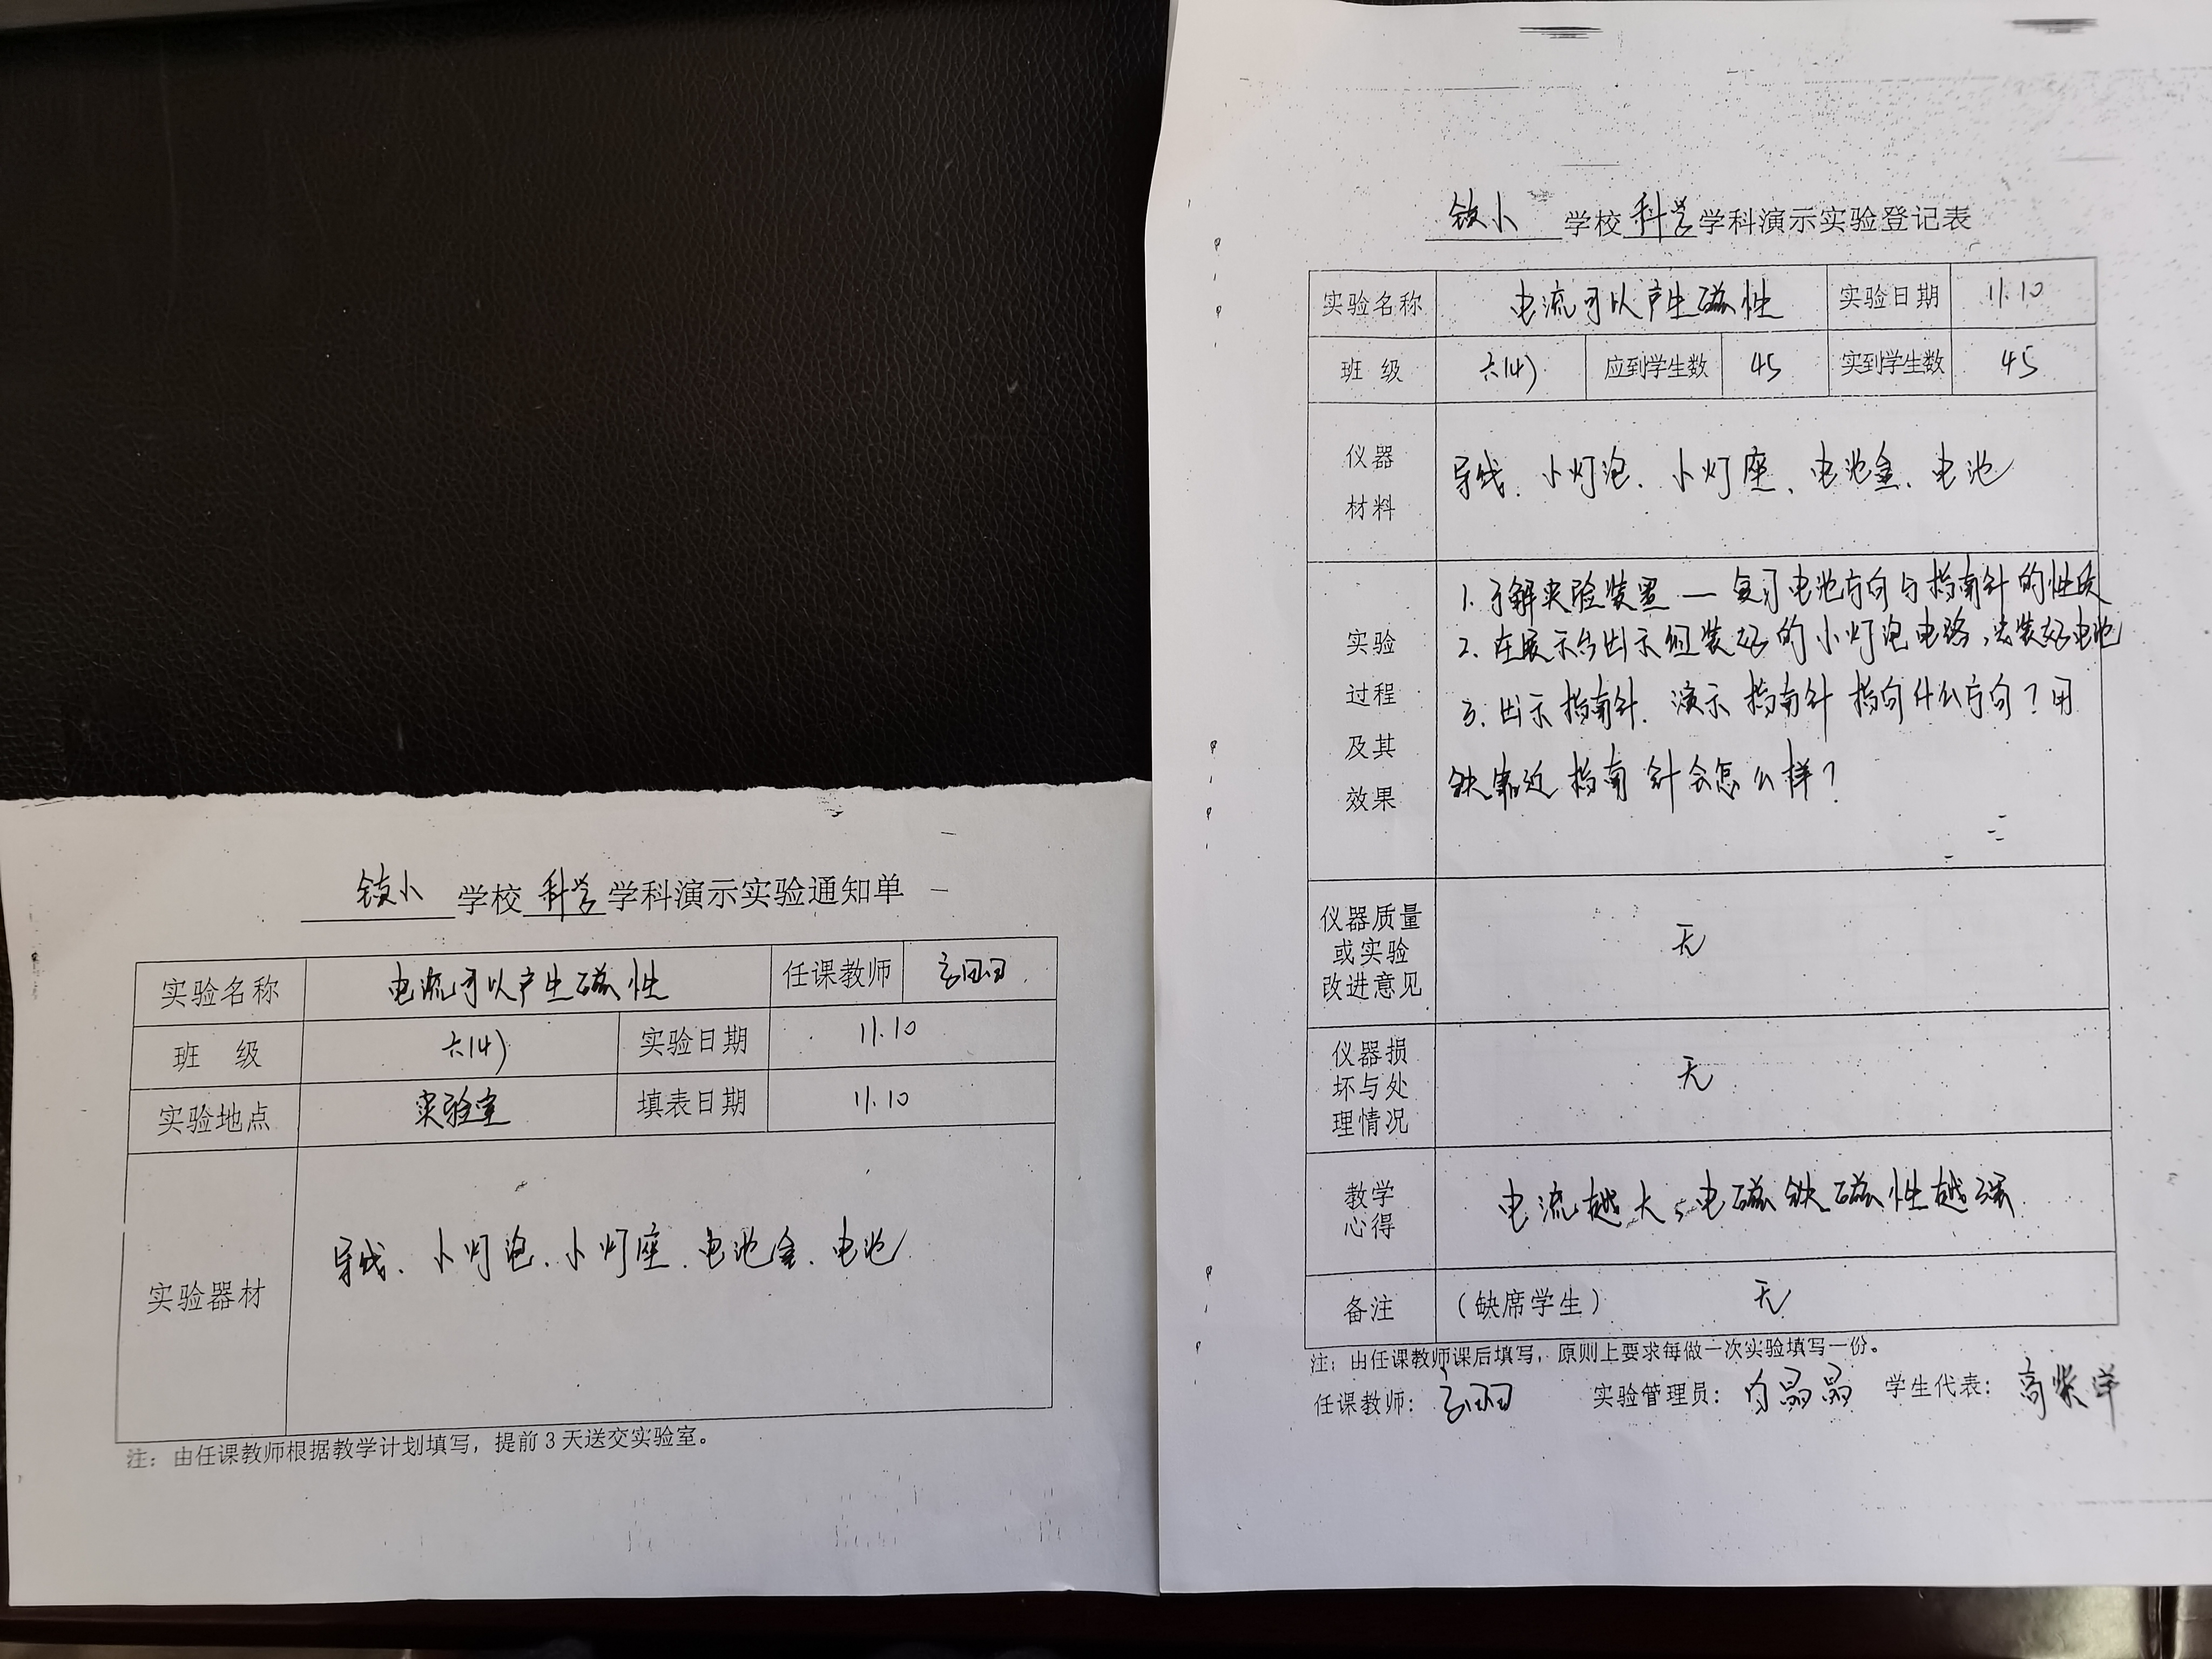 学校 科学 学科演示实验通知单
实验名称 电流可以产生磁性 任课教师
班 级 六(4) 实验日期 11.10
实验地点 实验室 填表日期 11.10
实验器材 导线、小灯泡、小灯座、电池盒、电池
注：由任课教师根据教学计划填写，提前3天送交实验室。
学校 科学 学科演示实验登记表
实验名称 电流可以产生磁性 实验日期 11.10
班 级 六(4) 应到学生数 45 实到学生数 45
仪器
材料
导线、小灯泡、小灯座、电池盒、电池
实验
过程
及其
效果
1.了解实验装置—复习电池方向与指南针的性质
2.在展示台出示组装好的小灯泡电路，装好电池
3.出示指南针.演示指南针指向什么方向？用
铁靠近指南针会怎么样？
仪器质量
或实验
改进意见
无
仪器损
坏与处
理情况
无
教学
心得
电流越大，电磁铁磁性越强
备注 （缺席学生） 无
注：由任课教师课后填写，原则上要求每做一次实验填写一份。
任课教师： 实验管理员：白晶晶 学生代表：高紫洋